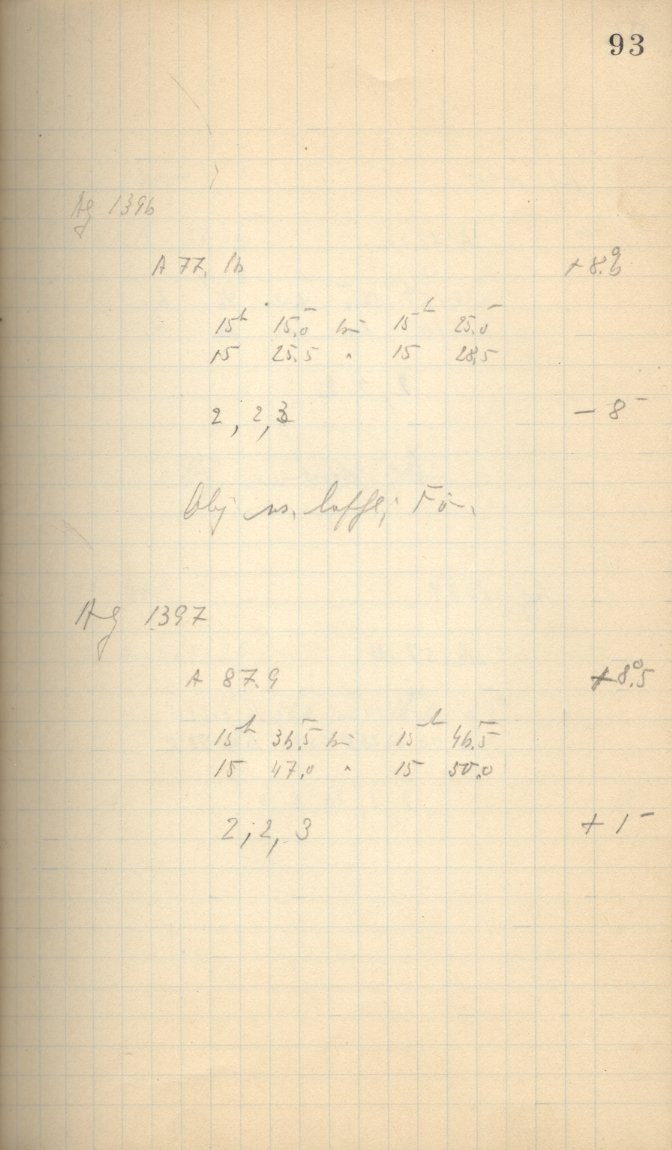 93
Ag 1396
A 77. 16 +8.°6
15ʰ 15.0 bis 15ʰ 25.0
15 25.5 " 15 28.5
2, 2, 3 - 8
Obj
Ag 1397
A 87.9 +8.°5
15ʰ 36.5 bis 15ʰ 46.5
15 47.0 " 15 50.0
2, 2, 3 + 1